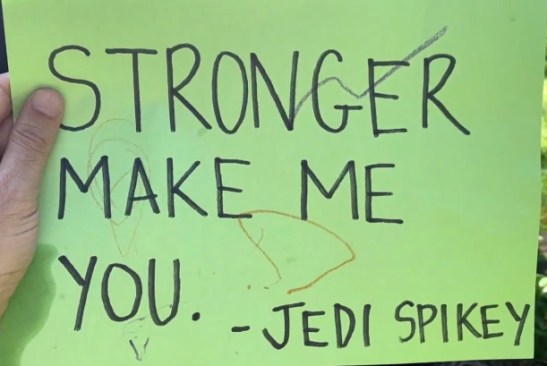 STRONGER
MAKE ME
YOU.
- JEDI SPIKEY